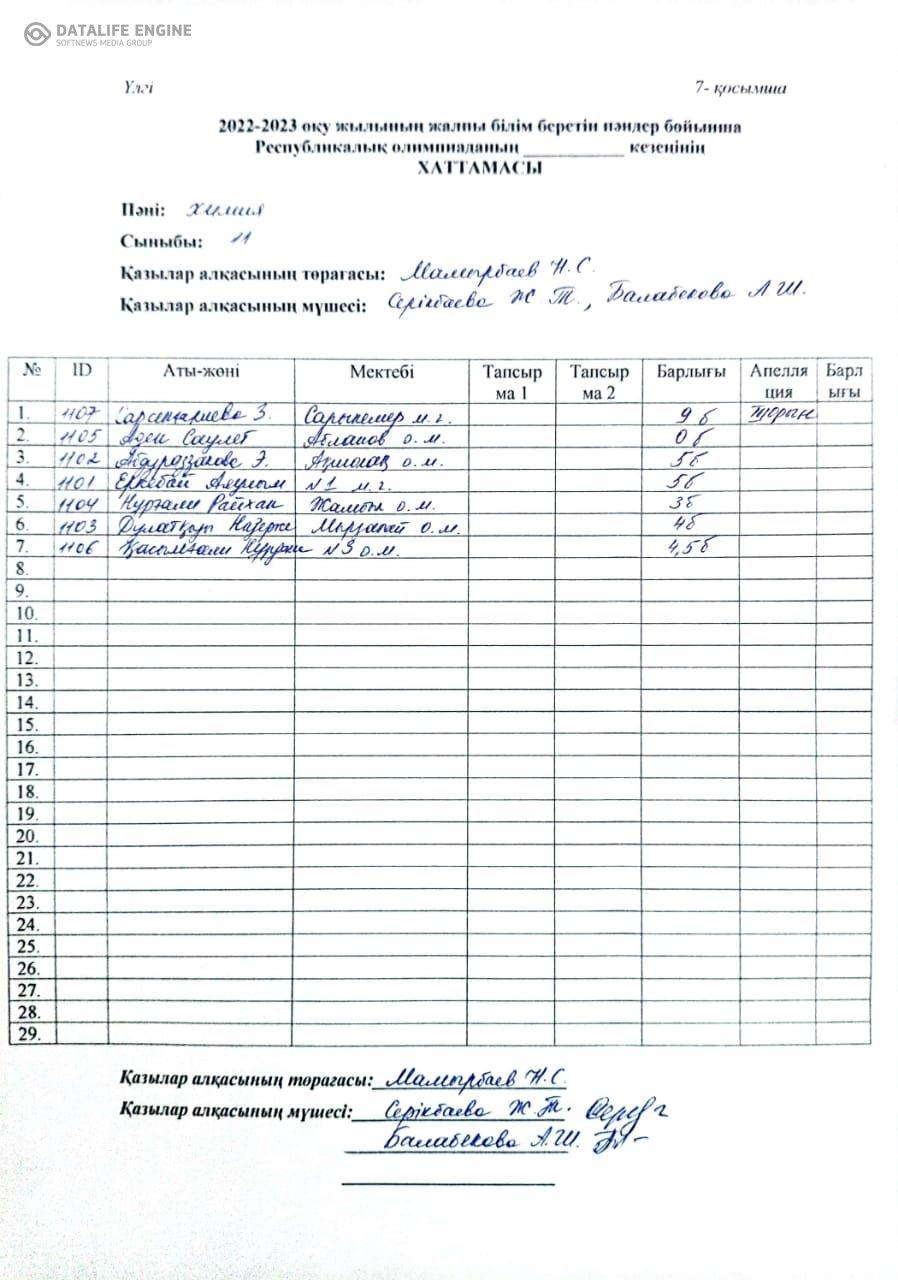 DATALIFE ENGINE
SOFTNEWS MEDIA GROUP
Үлгі 7- қосымша
2022-2023 оқу жылының жалпы білім беретін пәндер бойынша
Республикалық олимпиаданың ____________ кезеңінің
ХАТТАМАСЫ
Пәні: химия
Сыныбы: 11
Қазылар алқасының төрағасы: Мамырбаев Н.С.
Қазылар алқасының мүшесі: Серікбаева Ж.Т., Балабекова А.Ш.
№ ID Аты-жөні Мектебі Тапсырма 1 Тапсырма 2 Барлығы Апелляция Барлығы
1. 1107 З. Сарыкемер м.г. 9 б
2. 1105 Сәулет Абланов о.м. 0 б
3. 1102 Абдураззакова Э. о.м. 5б
4. 1101 Еркебай Аяулым №1 м.г. 5б
5. 1104 Нурғали Райхан Жамбыл о.м. 3б
6. 1103 о.м. 4б
7. 1106 №3 о.м. 4,5б
8.
9.
10.
11.
12.
13.
14.
15.
16.
17.
18.
19.
20.
21.
22.
23.
24.
25.
26.
27.
28.
29.
Қазылар алқасының төрағасы: Мамырбаев Н.С.
Қазылар алқасының мүшесі: Серікбаева Ж.Т.
Балабекова А.Ш.